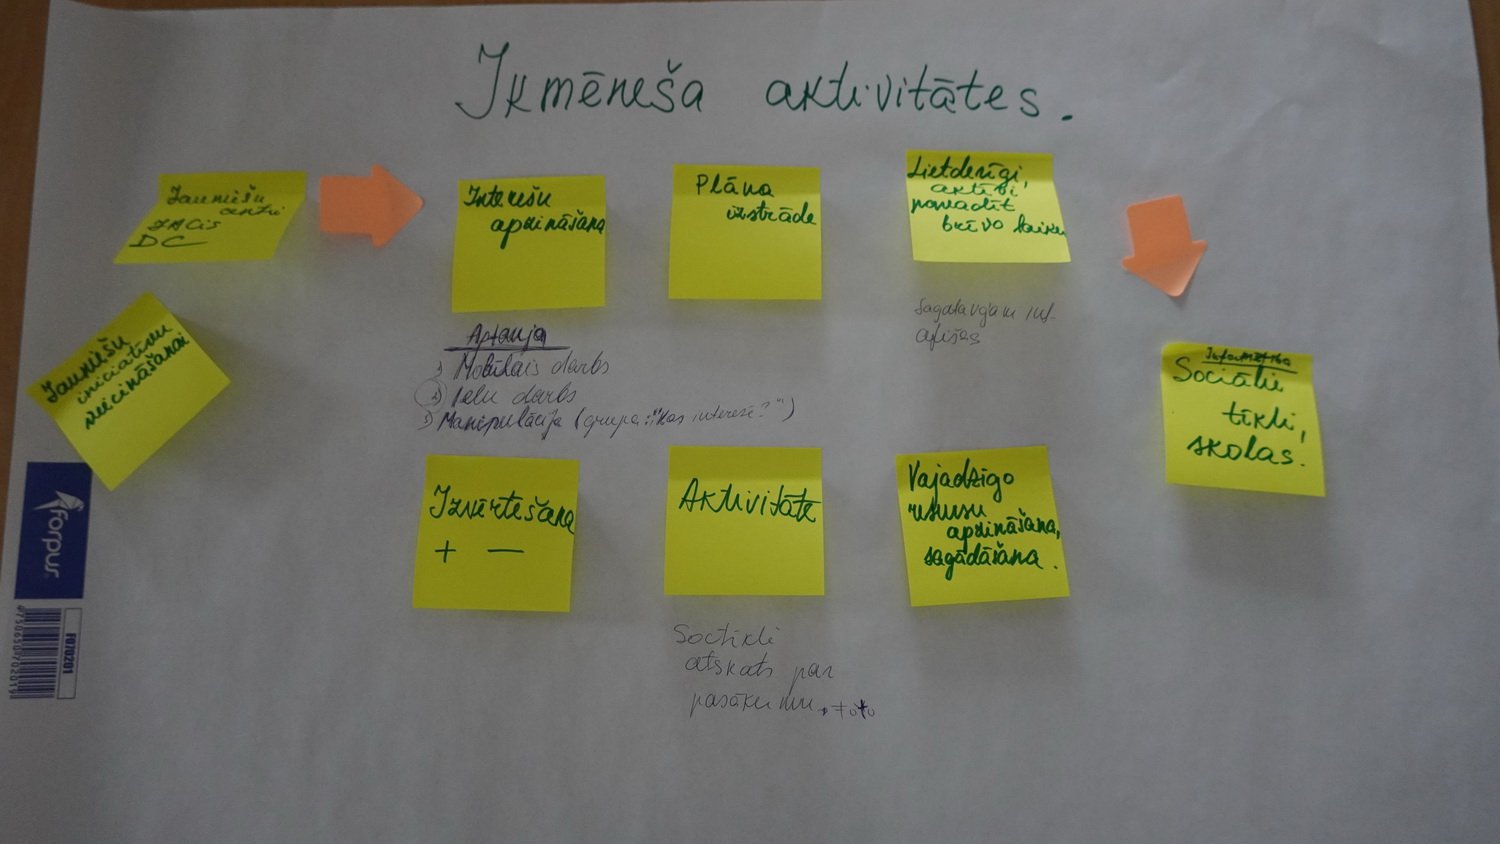 Ikmēneša aktivitātes.
Jauniešu
centri
DC
Jauniešu
iniciatīvu
veicināšanai
Interešu
apzināšana
Aptauja
1) Mobīlais darbs
2) Ielu darbs
3) Manipulācija (grupa: "Kas interesē?")
Plāna
izstrāde
Lietderīgi,
aktīvi,
pavadīt
brīvo laiku
Sagatavojam inf.
afišas
Informētība
Sociālie
tīkli,
skolas.
Vajadzīgo
resursu
apzināšana,
sagādāšana.
Aktivitāte
Soctīkli
atskats par
pasākumu + foto
Izvērtēšana
+ —
forpus
FO70201
4750650702019